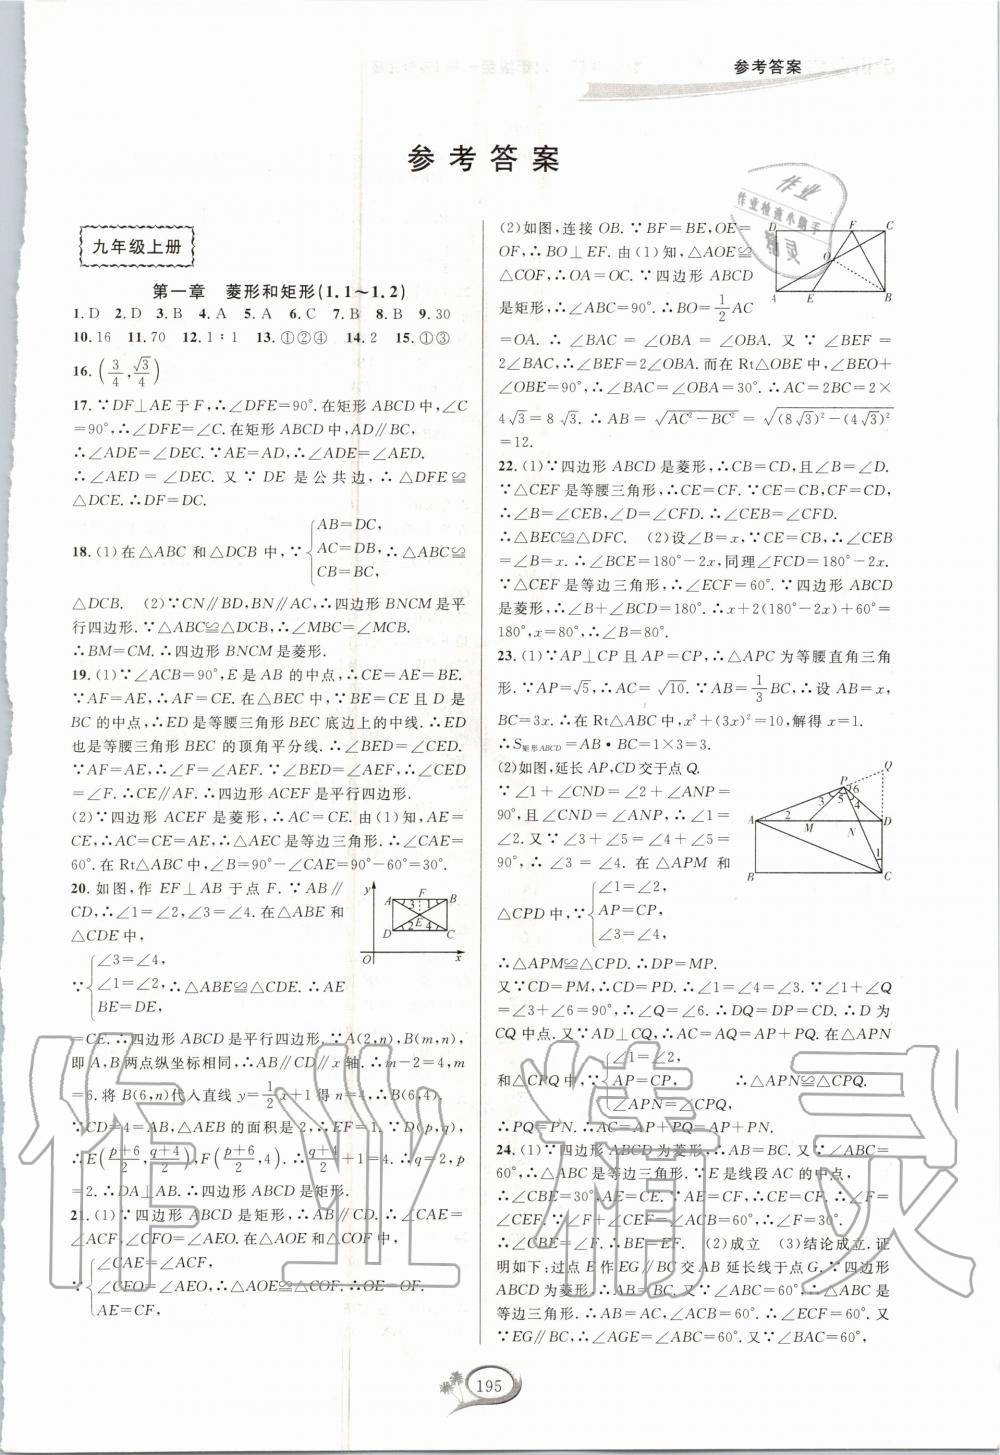 参考答案
参考答案
九年级上册
第一章 菱形和矩形(1.1~1.2)
1.D 2.D 3.B 4.A 5.A 6.C 7.B 8.B 9.30
10.16 11.70 12.1∶1 13.①②④ 14.2 15.①③
16.(3/4,√3/4)
17.∵DF⊥AE于F,∴∠DFE=90°.在矩形ABCD中,∠C
=90°,∴∠DFE=∠C.在矩形ABCD中,AD∥BC,
∴∠ADE=∠DEC.∵AE=AD,∴∠ADE=∠AED.
∴∠AED=∠DEC.又∵DE是公共边,∴△DFE≌
△DCE.∴DF=DC.
18.(1)在△ABC和△DCB中,∵{AB=DC,
AC=DB,∴△ABC≌
CB=BC,
△DCB. (2)∵CN∥BD,BN∥AC,∴四边形BNCM是平
行四边形.∵△ABC≌△DCB,∴∠MBC=∠MCB.
∴BM=CM.∴四边形BNCM是菱形.
19.(1)∵∠ACB=90°,E是AB的中点,∴CE=AE=BE.
∵AF=AE,∴AF=CE.在△BEC中,∵BE=CE且D是
BC的中点,∴ED是等腰三角形BEC底边上的中线.∴ED
也是等腰三角形BEC的顶角平分线.∴∠BED=∠CED.
∵AF=AE,∴∠F=∠AEF.∵∠BED=∠AEF,∴∠CED
=∠F.∴CE∥AF.∴四边形ACEF是平行四边形.
(2)∵四边形ACEF是菱形,∴AC=CE.由(1)知,AE=
CE,∴AC=CE=AE.∴△AEC是等边三角形.∴∠CAE=
60°.在Rt△ABC中,∠B=90°-∠CAE=90°-60°=30°.
20.如图,作EF⊥AB于点F.∵AB∥
CD,∴∠1=∠2,∠3=∠4.在△ABE和
△CDE中,
∵{∠3=∠4,
∠1=∠2,∴△ABE≌△CDE.∴AE
BE=DE,
y
A F B
3 1
E
D 2 4 C
O x
=CE.∴四边形ABCD是平行四边形.∵A(2,n),B(m,n),
即A,B两点纵坐标相同,∴AB∥CD∥x轴.∴m-2=4,m
=6.将B(6,n)代入直线y=1/2x+1得n=4,∴B(6,4).
∵CD=4=AB,△AEB的面积是2,∴EF=1.∵D(p,q),
∴E(p+6/2,q+4/2),F(p+6/2,4).∴q+4/2+1=4.∴q=2,p
=2.∴DA⊥AB.∴四边形ABCD是矩形.
21.(1)∵四边形ABCD是矩形,∴AB∥CD.∴∠CAE=
∠ACF,∠CFO=∠AEO.在△AOE和△COF中,
∵{∠CAE=∠ACF,
∠CFO=∠AEO,∴△AOE≌△COF.∴OE=OF.
AE=CF,
(2)如图,连接OB.∵BF=BE,OE=
OF,∴BO⊥EF.由(1)知,△AOE≌
△COF,∴OA=OC.∵四边形ABCD
是矩形,∴∠ABC=90°.∴BO=1/2AC
D F C
O
A E B
=OA.∴∠BAC=∠OBA=∠OAB.又∵∠BEF=
2∠BAC,∴∠BEF=2∠OBA.而在Rt△OBE中,∠BEO+
∠OBE=90°,∴∠BAC=∠OBA=30°.∴AC=2BC=2×
4√3=8√3.∴AB=√AC²-BC²=√(8√3)²-(4√3)²
=12.
22.(1)∵四边形ABCD是菱形,∴CB=CD,且∠B=∠D.
∵△CEF是等腰三角形,∴CE=CF.∵CE=CB,CF=CD,
∴∠B=∠CEB,∠D=∠CFD.∴∠CEB=∠CFD.
∴△BEC≌△DFC. (2)设∠B=x,∵CE=CB,∴∠CEB
=∠B=x.∴∠BCE=180°-2x,同理∠FCD=180°-2x.
∵△CEF是等边三角形,∴∠ECF=60°.∵四边形ABCD
是菱形,∴∠B+∠BCD=180°.∴x+2(180°-2x)+60°=
180°,x=80°,∴∠B=80°.
23.(1)∵AP⊥CP且AP=CP,∴△APC为等腰直角三角
形.∵AP=√5,∴AC=√10.∵AB=1/3BC,∴设AB=x,
BC=3x.∴在Rt△ABC中,x²+(3x)²=10,解得x=1.
∴S矩形ABCD=AB·BC=1×3=3.
(2)如图,延长AP,CD交于点Q.
∵∠1+∠CND=∠2+∠ANP=
90°,且∠CND=∠ANP,∴∠1=
∠2.又∵∠3+∠5=∠4+∠5=
90°,∴∠3=∠4.在△APM和
△CPD中,∵{∠1=∠2,
AP=CP,
∠3=∠4,
Q
P 6
3 5 4
A 2 M N D
1
B C
∴△APM≌△CPD.∴DP=MP.
又∵CD=PM,∴CD=PD.∴∠1=∠4=∠3.∵∠1+∠Q
=∠3+∠6=90°,∴∠Q=∠6.∴DQ=DP=CD.∴D为
CQ中点.又∵AD⊥CQ,∴AC=AQ=AP+PQ.在△APN
和△CPQ中,∵{∠1=∠2,
AP=CP, ∴△APN≌△CPQ.
∠APN=∠CPQ,
∴PQ=PN.∴AC=AP+PQ=AP+PN.
24.(1)∵四边形ABCD为菱形,∴AB=BC.又∵∠ABC=
60°,∴△ABC是等边三角形.∵E是线段AC的中点,
∴∠CBE=30°,AE=CE.∵AE=CF,∴CE=CF.∴∠F=
∠CEF.∵∠F+∠CEF=∠ACB=60°,∴∠F=30°.
∴∠CBE=∠F.∴BE=EF. (2)成立 (3)结论成立.证
明如下:过点E作EG∥BC交AB延长线于点G.∵四边形
ABCD为菱形,∴AB=BC.又∵∠ABC=60°,∴△ABC是
等边三角形.∴AB=AC,∠ACB=60°.∴∠ECF=60°.又
∵EG∥BC,∴∠AGE=∠ABC=60°.又∵∠BAC=60°,
195
作业精灵
作业
作业检查小助手
精灵